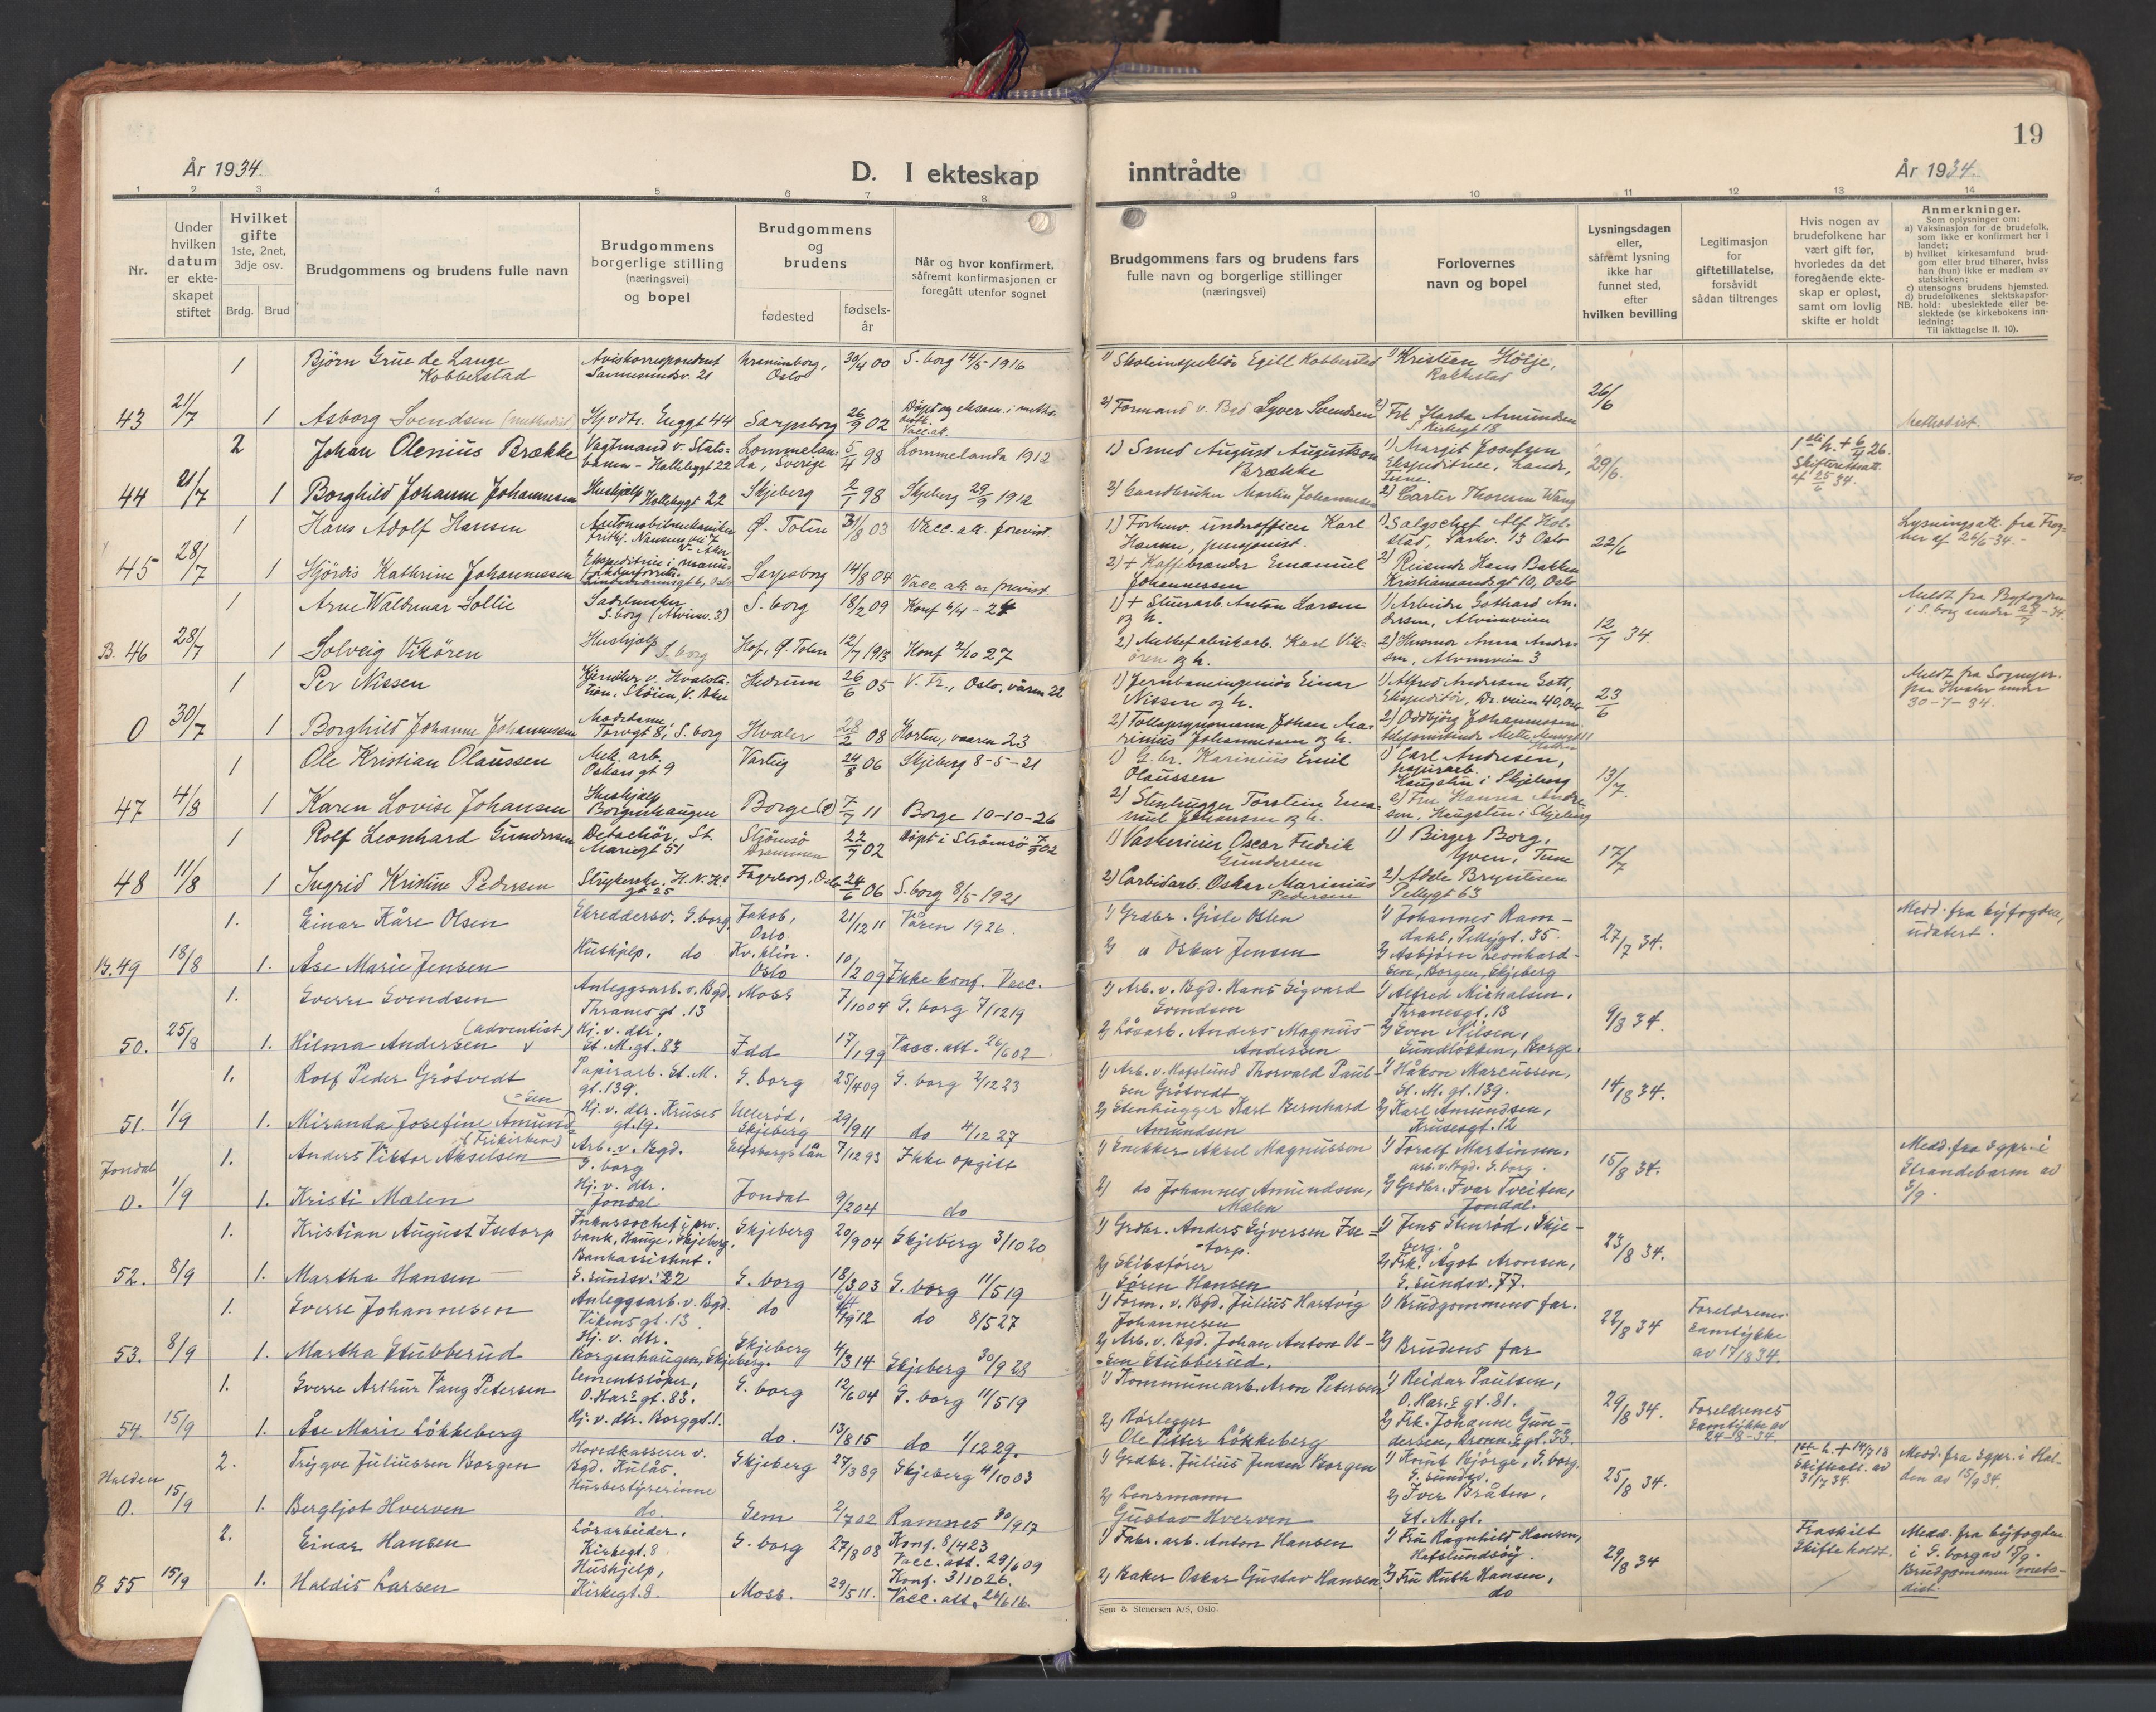 19
År 1934
D. I ekteskap
inntrådte
År 1934.
1 2 3 4 5 6 7 8 9 10 11 12 13 14
Nr.
Under
hvilken
datum
er ekte-
skapet
stiftet
Hvilket
gifte
1ste, 2net,
3dje osv.
Brdg. Brud
Brudgommens og brudens fulle navn
Brudgommens
borgerlige stilling
(næringsvei)
og bopel
Brudgommens
og
brudens
fødested
fødsels-
år
Når og hvor konfirmert,
såfremt konfirmasjonen er
foregått utenfor sognet
Brudgommens fars og brudens fars
fulle navn og borgerlige stillinger
(næringsvei)
Forlovernes
navn og bopel
Lysningsdagen
eller,
såfremt lysning
ikke har
funnet sted,
efter
hvilken bevilling
Legitimasjon
for
giftetillatelse,
forsåvidt
sådan tiltrenges
Hvis nogen av
brudefolkene har
vært gift før,
hvorledes da det
foregående ekte-
skap er opløst,
samt om lovlig
skifte er holdt
Anmerkninger.
Som oplysninger om:
a) Vaksinasjon for de brudefolk,
som ikke er konfirmert her i
landet;
b) hvilket kirkesamfund brud-
gom eller brud tilhører, hviss
han (hun) ikke er medlem av
statskirken;
c) utensogns brudens hjemsted.
d) brudefolkenes slektskapsfor-
NB. hold: ubeslektede eller be-
slektede (se kirkebokens inn-
ledning:
Til iakttagelse II. 10).
1 Bjørn Grue de Lange
Kobberstad
Aviskorrespondent
Sannesundsv. 21
Oslo
30/4 00 S. borg 14/5 1916
1) Skoleinspektør Egill Kobberstad
1) Kristian Holje,
Rakkestad
26/6
43 21/7 1 Asborg Svendsen (methodist) Hjv. dtr. Enggt 44 Sarpsborg 26/9 02
2) Formand v. Bgd Syver Svendsen 2) Frk Harda Amundsen
Kirkegt 18
Methodist.
2 Johan Olenius Brække Vagtmand v. Stats-
banen - Hallebygt 22 Lommelan-
da, Sverige 5/4 98 Lommelanda 1912
1) Smed August Augustson
Brække
1) Margit Josefsen
Ekspeditrice, Lande,
Tune.
29/6.
44 21/7 1 Borghild Johanne Johannessen Hushjelp Hallebygt 22 Skjeberg 2/1 98 Skjeberg 29/9 1912
2) Gaardbruker Martin Johannessen 2) Carter Thoresen Wang
1 Hans Adolf Hansen Automobilmekaniker
Ø. Toten 31/8 03 Vacc. att. forevist.
1) Forhenv. underofficer Karl
Hansen, pensjonist.
1) Salgschef Alf Hol-
stad, Parkv. 13 Oslo
22/6
Lysningsatt. fra Frog-
ner af 26/6-34.-
45 28/7 1 Hjördis Kathrine Johannessen Ekspeditrise i manu-
fakturforretn.
Sarpsborg 14/8 04 Vacc. att. er forevist.
2) + Kaffebrænder Emanuel
Johannessen
2) Reisende Hans Bakken
Kristiansandsgt 10, Oslo
1 Arne Waldemar Sollie Sadelmaker
S.borg (Alvimv. 3) S. borg 18/2 09 Konf 6/4-24
1) + Stuerarb. Anton Larsen
og h.
1) Arbeider Gothard An-
dersen, Alvimveien
12/7 34.
Meldt fra Byfogden
B. 46 28/7 1 Solveig Vikören Hushjelp S. borg Hof, Ø. Toten 12/7 1913 Konf 2/10 27
2) Melkefabrikarb. Karl Vik-
ören og h.
2) Husmor Anna Ander-
sen, Alvimveien 3
1 Per Nissen Kjemiker v. Hvalsta-
tion. Skøien, V. Aker Hedrum 26/6 05 V. Fr., Oslo, våren 22
1) Jernbaneingeniør Einar
Nissen og h.
1) Alfred Andersen Gott,
Ekspeditör, Dr. veien 40, Oslo
23/6
Meldt fra Sogneprt.
paa Hvaler under
30-7-34.
0 30/7 1 Borghild Johanne Johannessen Modedame,
Torvgt 8, S. borg Hvaler 28/2 08 Horten, vaaren 23
2) Tollopsynsmann Johan Ma-
rinius Johannessen og h.
2) Oddbjörg Johannessen
1 Ole Kristian Olaussen Mek. arb.
Oskars gt 9 Varteig 24/8 06 Skjeberg 8-5-21
1) G. br. Karinius Emil
Olaussen
1) Carl Andresen,
papirarb.
Haugsten i Skjeberg
13/7
47 4/8 1 Karen Lovise Johansen Hushjelp
Borgenhaugen Borge 7/7 11 Borge 10-10-26
2) Stenhugger Torstein Ema-
nuel Johansen og h.
2) Fru Hanna Andre-
sen, Haugsten i Skjeberg
1 Rolf Leonhard Gundersen Detachör, St.
Mariegt 51 Strömsö
Drammen 22/7 02 Döpt i Strömsö 7/9 02
1) Vaskerieier Oscar Fredrik
Gundersen
1) Birger Borg,
Yven, Tune
17/7
48 11/8 1 Ingrid Kristine Pedersen Strykerske, H.N.H's
gt 25 Fagerborg, Oslo 24/6 06 S. borg 8/5 1921
2) Carbidarb. Oskar Marinius
Pedersen
2) Adele Bryntesen
Pellygt 63
1. Einar Kåre Olsen Skreddersv. S. borg Jakob,
Oslo 21/12 11 Våren 1926.
1) Grdbr. Gisle Olsen
1) Johannes Ram-
dahl, Pellygt. 35.
27/7 34.
Medd. fra byfogden,
udatert.
B. 49 18/8 1. Åse Marie Jensen Hushjelp. do Kv. klin.
Oslo 10/2 09 Ikke konf. Vacc.
2) " Oskar Jensen
2) Asbjørn Leonhard-
sen, Borgen, Skjeberg
1. Sverre Svendsen Anleggsarb. v. Bgd.
Thranesgt. 13 Moss 7/10 04 S. borg 7/12 19
1) Arb. v. Bgd. Hans Sigvard
Svendsen
1) Alfred Michalsen,
Thranesgt. 13
9/8 34.
50. 25/8 1. Hilma Andersen (adventist) Hj. v. dtr.
St. M. gt. 83 Idd 17/1 99 Vacc. att. 26/6 02
2) Løsarb. Anders Magnus
Andersen
2) Sven Nilsen,
Sundløkken, Borge.
1. Rolf Peder Grötvedt Papirarb. St. M.
gt. 139. S. borg 25/4 09 S. borg 2/12 23
1) Arb. v. Hafslund Thorvald Paul-
sen Grötvedt
1) Håkon Marcussen,
St. M. gt. 139.
14/8 34.
51. 1/9 1. Miranda Josefine Amund-
sen (Frikirken) Hj. v. dtr. Kruses
gt. 19. Ullerød,
Skjeberg 29/9 11 do 4/12 27
2) Stenhugger Karl Bernhard
Amundsen
2) Karl Amundsen,
Krusesgt. 12
1. Anders Viktor Akselsen Arb. v. Bgd.
S. borg Elfsborgs län 7/12 93 Ikke opgitt
1) Snekker Aksel Magnusson
1) Toralf Martinsen,
arb. v. Bgd. S. borg.
15/8 34.
Medd. fra Sgpr. i
Strandebarm av
5/9.
Jondal
0. 1/9 1. Kristi Mælen Hj. v. dtr.
Jondal Jondal 9/2 04 do
2) do Johannes Amundsen,
Mælen
2) Grdbr. Ivar Tveiten,
Jondal.
1. Kristian August Isetorp Inkassochef i prv.
bank, Hauge, Skjeberg. Skjeberg 20/9 04 Skjeberg 3/10 20
1) Grdbr. Anders Syversen Ise-
torp.
1) Jens Stenrød, Skje-
berg.
23/8 34.
52. 8/9 1. Martha Hansen Bankassistent.
S. sundsv. 22 S. borg 18/3 03 S. borg 11/5 19
2) Skibsfører
Søren Hansen
2) Frk. Ågot Aronsen,
S. sundsv. 77.
1. Sverre Johannesen Anleggsarb. v. Bgd.
Vikens gt. 13 do do 8/5 27
1) Form. v. Bgd. Julius Hartvig
Johannesen
1) Brudgommens far.
22/8 34
Foreldrenes
samtykke
av 17/8 34.
53. 8/9 1. Martha Stubberud Hj. v. dtr.
Borgenhaugen, Skjeberg. Skjeberg 4/3 14 Skjeberg 30/9 28
2) Arb. v. Bgd. Johan Anton Ol-
sen Stubberud.
2) Brudens far
1. Sverre Arthur Vang Petersen Cementstøper,
O. Har.s gt. 83. S. borg 12/6 04 S. borg 11/5 19
1) Kommunearb. Aron Petersen
1) Reidar Paulsen,
O. Har.s gt. 81.
29/8 34.
Foreldrenes
samtykke av
24-8-34.
54. 15/9 1. Åse Marie Løkkeberg Hj. v. dtr. Borggt. 1. do. 13/8 15 do 1/12 29.
2) Rørlegger
Ole Petter Løkkeberg
2) Frk. Johanne Gun-
dersen, Dronn.s gt. 33.
2. Trygve Juliussen Borgen Hovedkasserer v.
Bgd. Kulås. Skjeberg 27/3 89 Skjeberg 4/10 03
1) Grdbr. Julius Jensen Borgen
1) Knut Bjørge, S. borg.
S. sundsv.
25/8 34.
Skifteatt. av
31/7 34.
Medd. fra Sgpr. i Hal-
den av 15/9 34.
Halden
0. 15/9 1. Bergljot Hverven Husbestyrerinne
do. Sem 2/7 02 Ramnes 30/9 17
2) Lensmann
Gustav Hverven
2) Iver Bråten,
St. M. gt.
2. Einar Hansen Løsarbeider.
Kirkegt. 8 S. borg 27/8 08 Konf. 8/4 23
Vacc. att. 29/6 09
1) Fabr. arb. Anton Hansen
1) Fru Ragnhild Hansen,
Hafslundsøy.
29/8 34
Fraskilt
Skifte holdt.
Medd. fra byfogden
i S. borg av 15/9.
Brudgommen meto-
dist.
B 55 15/9 1. Haldis Larsen Hushjelp,
Kirkegt. 8. Moss. 29/5 11. Konf. 3/10 26.
Vacc. att. 26/6 16.
2) Baker Oskar Gustav Hansen
2) Fru Ruth Hansen,
do
Sem & Stenersen A/S, Oslo.